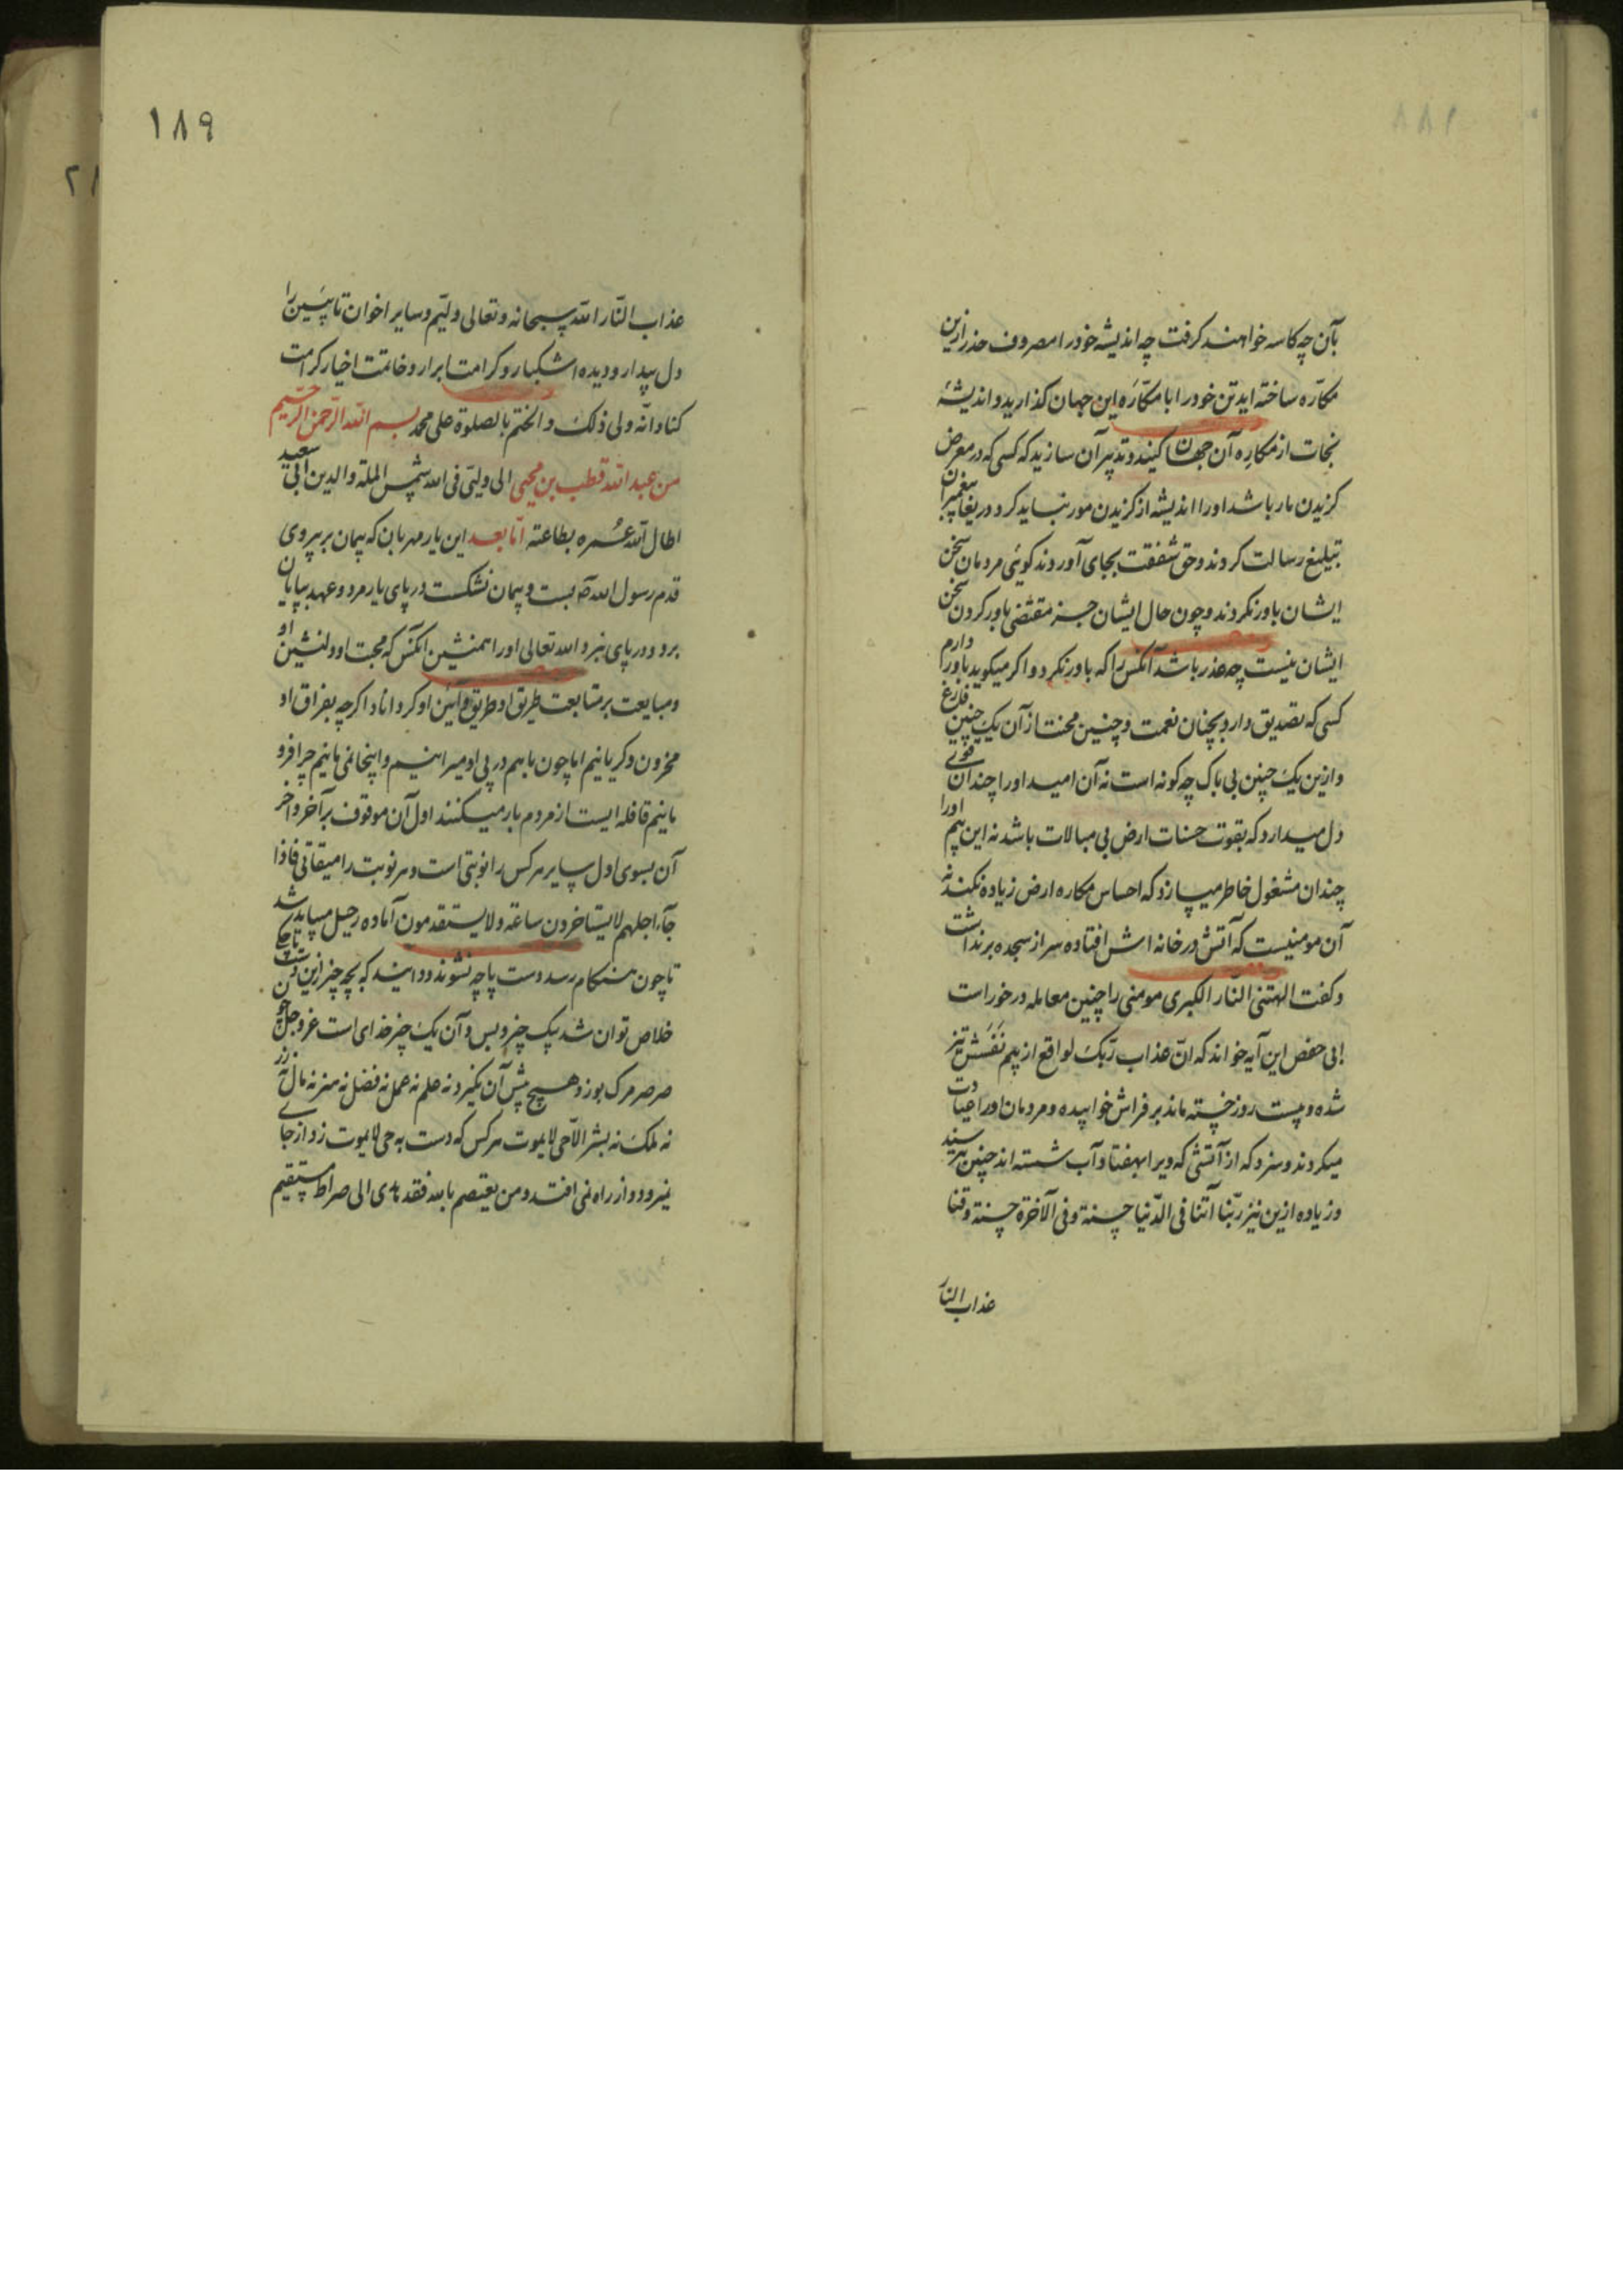 بآن چه کاسه خواهند کرفت چه اندیشهٔ خود را مصروف حذر ازین
مکاره ساخته اید تن خود را با مکاره این جهان کذارید و اندیشهٔ
نجات از مکاره آن جهان کنید و تدبیر آن سازید که کسی که در معرض
کزیدن مار باشد او را اندیشه از کزیدن مور نباید کرد و دریغا پیغمبران
تبلیغ رسالت کردند و حق شفقت بجای آوردند کوئی مردمان سخن
ایشان باور نکردند و چون حال ایشان جز مقتضی باور کردن سخن
ایشان نیست چه عذر باشد آنکس را که باور نکرد و اکر میکوید باور دارم
کسی که تصدیق دارد بچنان نعمت و چنین محنت از آن یک چنین فارغ
و ازین یک چنین بی باک چه کونه است نه آن امید او را چندان قوی
دل میدارد که بقوت حسنات ارض بی مبالات باشد نه این بیم او را
چندان مشغول خاطر میسازد که احساس مکاره ارض زیاده نکند نه
آن مومنیست که آتش در خانه اش افتاده سر از سجده برنداشت
و کفت الهتنی النار الکبری مومنی را چنین معامله در خور است
ابی حفص این آیه خواند که انّ عذاب ربّک لواقع از بیم نفسش تیز
شده و بیست روز خسته ماند بر فراش خوابیده و مردمان او را عیادت
میکردند و سزد که از آتشی که ویرا بهفتاد آب شسته اند چنین ترسند
و زیاده ازین نیز ربّنا آتنا فی الدّنیا حسنة و فی الآخرة حسنة و قنا
عذاب النار
۱۸۹
عذاب النّار الله سبحانه و تعالی ولیّم و سایر اخوان تا پسین را
دل بیدار و دیده اشکبار و کرامت ابرار و خاتمت اخیار کرامت
کناد انّه ولی ذلک و الختم بالصلوة علی محمد بسم الله الرّحمن الرّحیم
من عبد الله قطب بن محیی الی ولیّی فی الله شمس الملة و الدین ابی سعید
اطال الله عمره بطاعته امّا بعد این یار مهربان که پیمان بر پیروی
قدم رسول الله صه بست و پیمان نشکست در پای یار مرد و عهد بپایان
برد و در پای نبرد الله تعالی او را همنشین آنکس که محبت او دلنشین او
و مبایعت بر متابعت طریق او طریق و آئین او کرداناد اکرچه بفراق او
محزون و کریانیم اما چون با هم در پی او میرانیم و اینجا نمی مانیم چرا فرو
مانیم قافله ایست از مردم بار میکنند اول آن موقوف بر آخر و آخر
آن بسوی اول سایر هر کس را نوبتی است و هر نوبت را میقاتی فاذا
جآء اجلهم لا یستاخرون ساعة و لا یستقدمون آماده رحیل میباید شد
تا چون هنکام رسد دست پاچه نشوند و دانید که بچه چیز ازین
خلاص توان شد بیک چیز و بس و آن یک چیز خدای است عز و جل چو
صرصر مرک بوزد هیچ پیش آن نکیرد نه علم نه عمل نه فضل نه هنر نه مال نه زر
نه ملک نه بشر الاّ حی لا یموت هر کس که دست به حی لا یموت زد از جای
نیرود و از راه نمی افتد و من یعتصم بالله فقد هدی الی صراط مستقیم